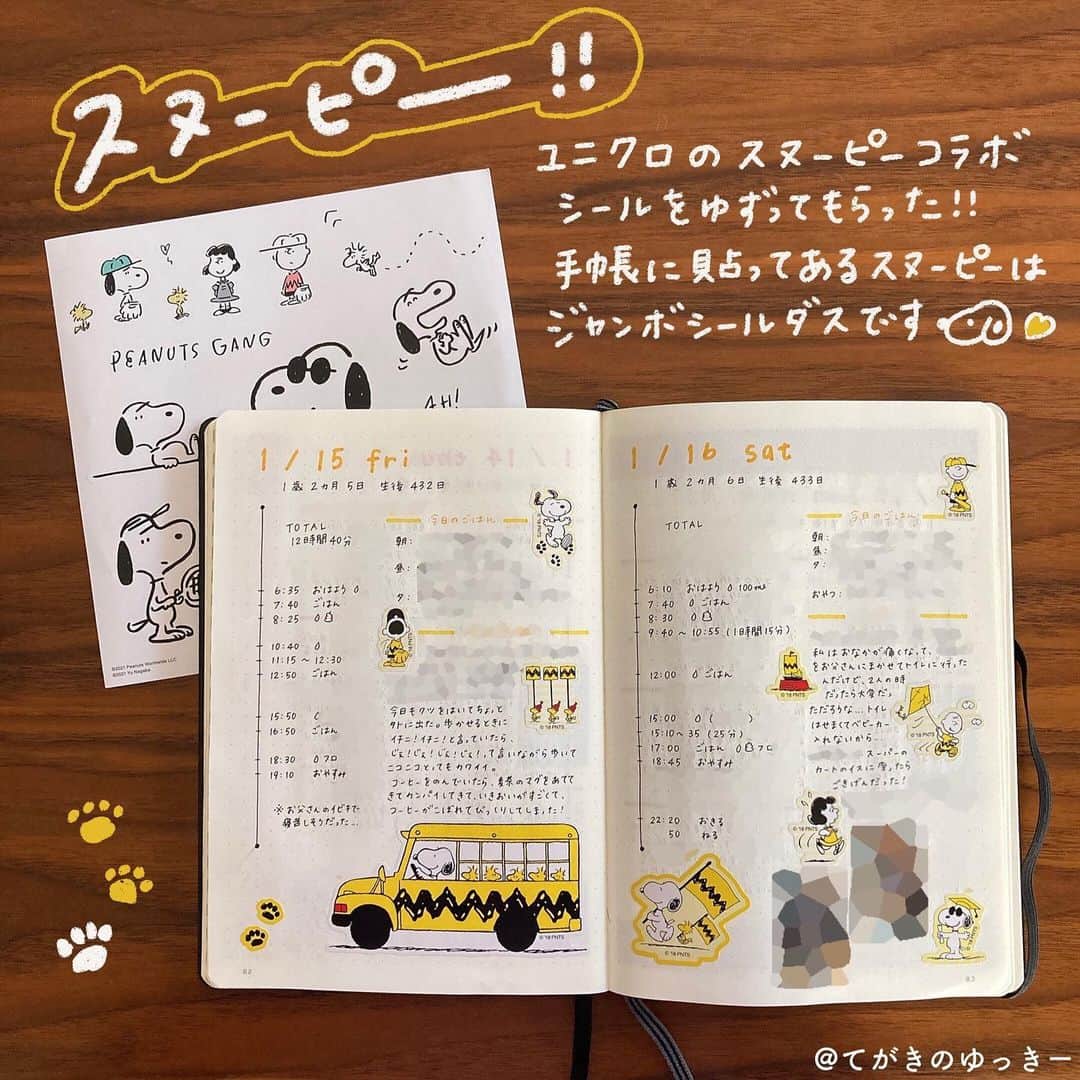 スヌーピー!!
ユニクロのスヌーピーコラボ
シールをゆずってもらった!!
手帳に貼ってあるスヌーピーは
ジャンボシールダスです
PEANUTS GANG
AH!
©2021 Peanuts Worldwide LLC
©2021 Yu Nagaba
1/15 fri
1歳2カ月5日 生後432日
TOTAL
12時間40分
6:35 おはよう
7:40 ごはん
8:25
10:40
11:15～12:30
12:50 ごはん
15:50
16:50 ごはん
18:30 フロ
19:10 おやすみ
※お父さんのイビキで
寝落しそうだった…
今日のごはん
朝:
昼:
夕:
今日もクツをはいてちょっと
外に出た。歩かせるときに
イチニ!イチニ!と言っていたら、
じぇ!じぇ!じぇ!じぇ!って言いながら歩いて
ニコニコとてもカワイイ。
コーヒーをのんでいたら、麦茶のマグをあてて
きてカンパイしてきて、いきおいがすごくて、
コーヒーがこぼれてびっくりしてしまった!
©'18 PNTS
82
1/16 sat
1歳2カ月6日 生後433日
TOTAL
6:10 おはよう 100ml
7:40 ごはん
8:30
9:40～10:55 (1時間15分)
12:00 ごはん
15:00
15:10～35 (25分)
17:00 ごはん フロ
18:45 おやすみ
22:20 おきる
50 ねる
今日のごはん
朝:
昼:
夕:
おやつ:
私はおなかが痛くなって、
をお父さんにまかせてトイレに行った
んだけど、2人の時
だったら大変だ。
ただろうな…トイレ
はせまくてベビーカー
入れないから…
スーパーの
カートのイスに座ったら
ごきげんだった!
©'18 PNTS
©'18 PNTS
©'18 PNTS
©'18 PNTS
83
@てがきのゆっきー